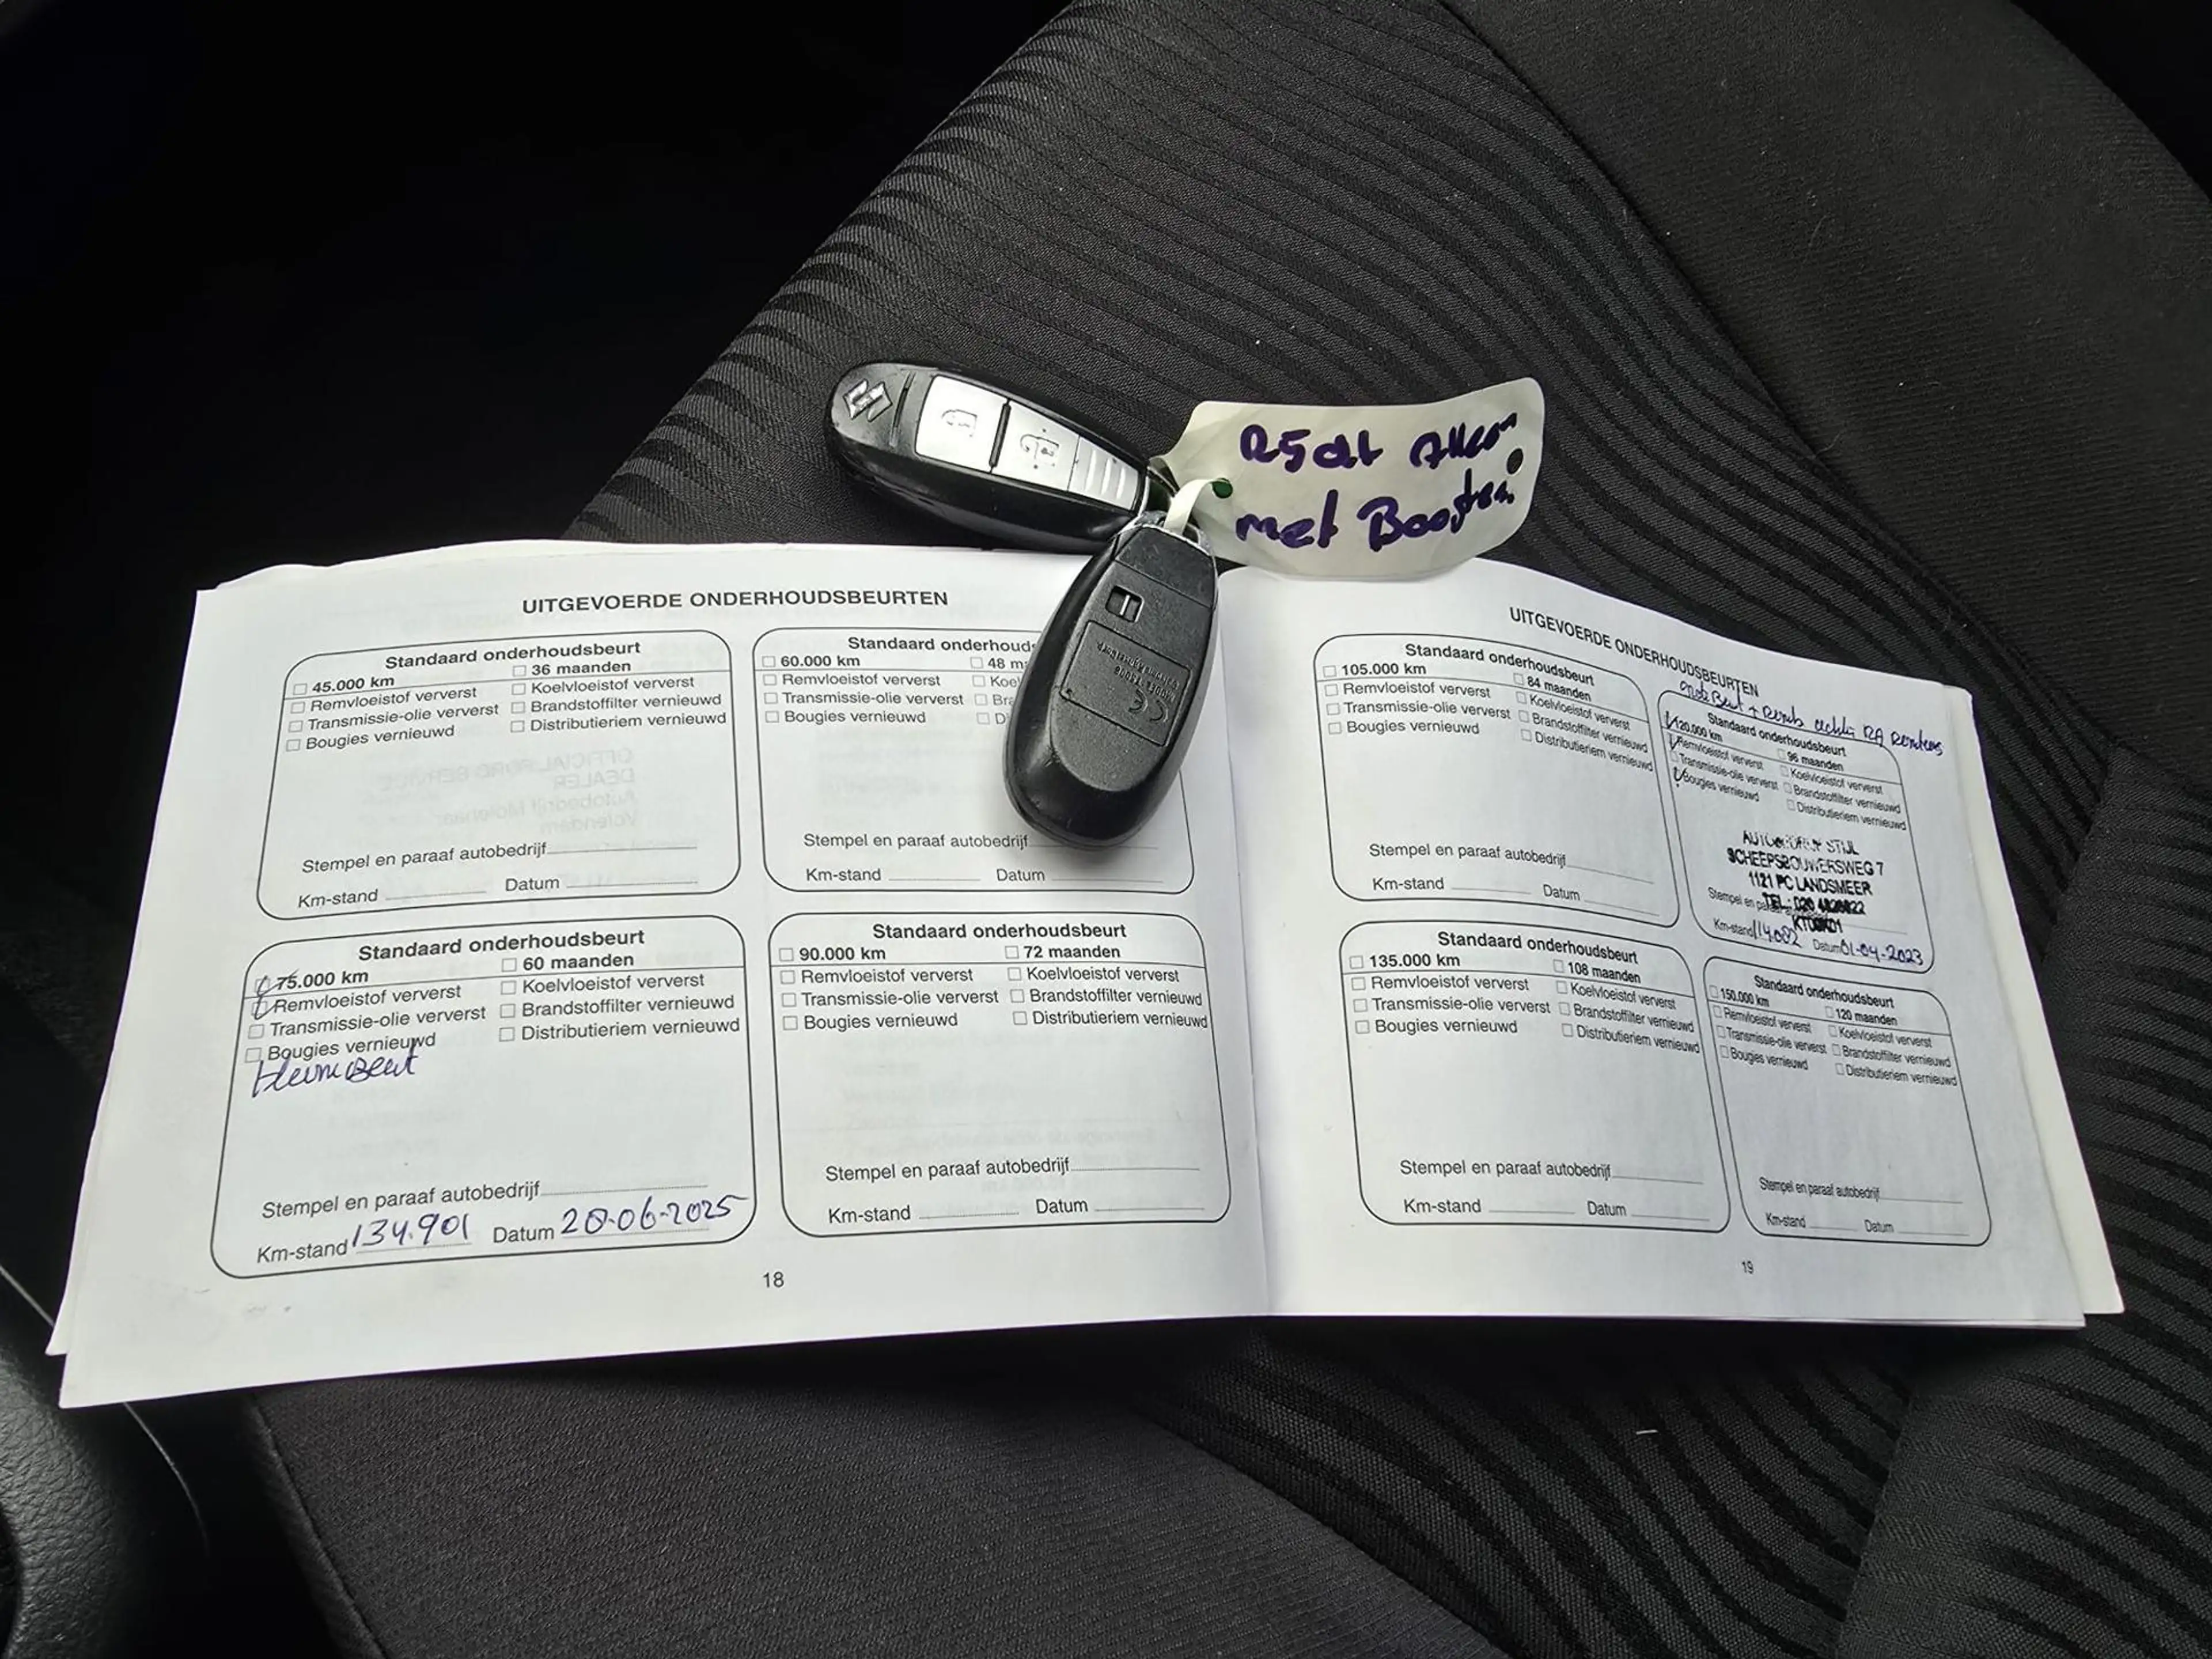 met
UITGEVOERDE ONDERHOUDSBEURTEN
Standaard onderhoudsbeurt
45.000 km 36 maanden
Remvloeistof ververst Koelvloeistof ververst
Transmissie-olie ververst Brandstoffilter vernieuwd
Bougies vernieuwd Distributieriem vernieuwd
OFFICIAL FORD SERVICE
DEALER
Autobedrijf Molenaar
Volendam
Stempel en paraaf autobedrijf
Km-stand Datum
Standaard onderhouds
60.000 km 48 m
Remvloeistof ververst Koel
Transmissie-olie ververst Bra
Bougies vernieuwd Di
Stempel en paraaf autobedrijf
Km-stand Datum
Standaard onderhoudsbeurt
75.000 km 60 maanden
Remvloeistof ververst Koelvloeistof ververst
Transmissie-olie ververst Brandstoffilter vernieuwd
Bougies vernieuwd Distributieriem vernieuwd
Stempel en paraaf autobedrijf
Km-stand 134.901 Datum 20-06-2025
Standaard onderhoudsbeurt
90.000 km 72 maanden
Remvloeistof ververst Koelvloeistof ververst
Transmissie-olie ververst Brandstoffilter vernieuwd
Bougies vernieuwd Distributieriem vernieuwd
Stempel en paraaf autobedrijf
Km-stand Datum
18
UITGEVOERDE ONDERHOUDSBEURTEN
Standaard onderhoudsbeurt
105.000 km 84 maanden
Remvloeistof ververst Koelvloeistof ververst
Transmissie-olie ververst Brandstoffilter vernieuwd
Bougies vernieuwd Distributieriem vernieuwd
Stempel en paraaf autobedrijf
Km-stand Datum
Standaard onderhoudsbeurt
120.000 km 96 maanden
Remvloeistof ververst Koelvloeistof ververst
Transmissie-olie ververst Brandstoffilter vernieuwd
Bougies vernieuwd Distributieriem vernieuwd
STIJL
SCHEEPSBOUWERSWEG 7
1121 PC LANDSMEER
Stempel en TEL.: 020
Km-stand 114.082 Datum 01-04-2023
Standaard onderhoudsbeurt
135.000 km 108 maanden
Remvloeistof ververst Koelvloeistof ververst
Transmissie-olie ververst Brandstoffilter vernieuwd
Bougies vernieuwd Distributieriem vernieuwd
Stempel en paraaf autobedrijf
Km-stand Datum
Standaard onderhoudsbeurt
150.000 km 120 maanden
Remvloeistof ververst Koelvloeistof ververst
Transmissie-olie ververst Brandstoffilter vernieuwd
Bougies vernieuwd Distributieriem vernieuwd
Stempel en paraaf autobedrijf
Km-stand Datum
19